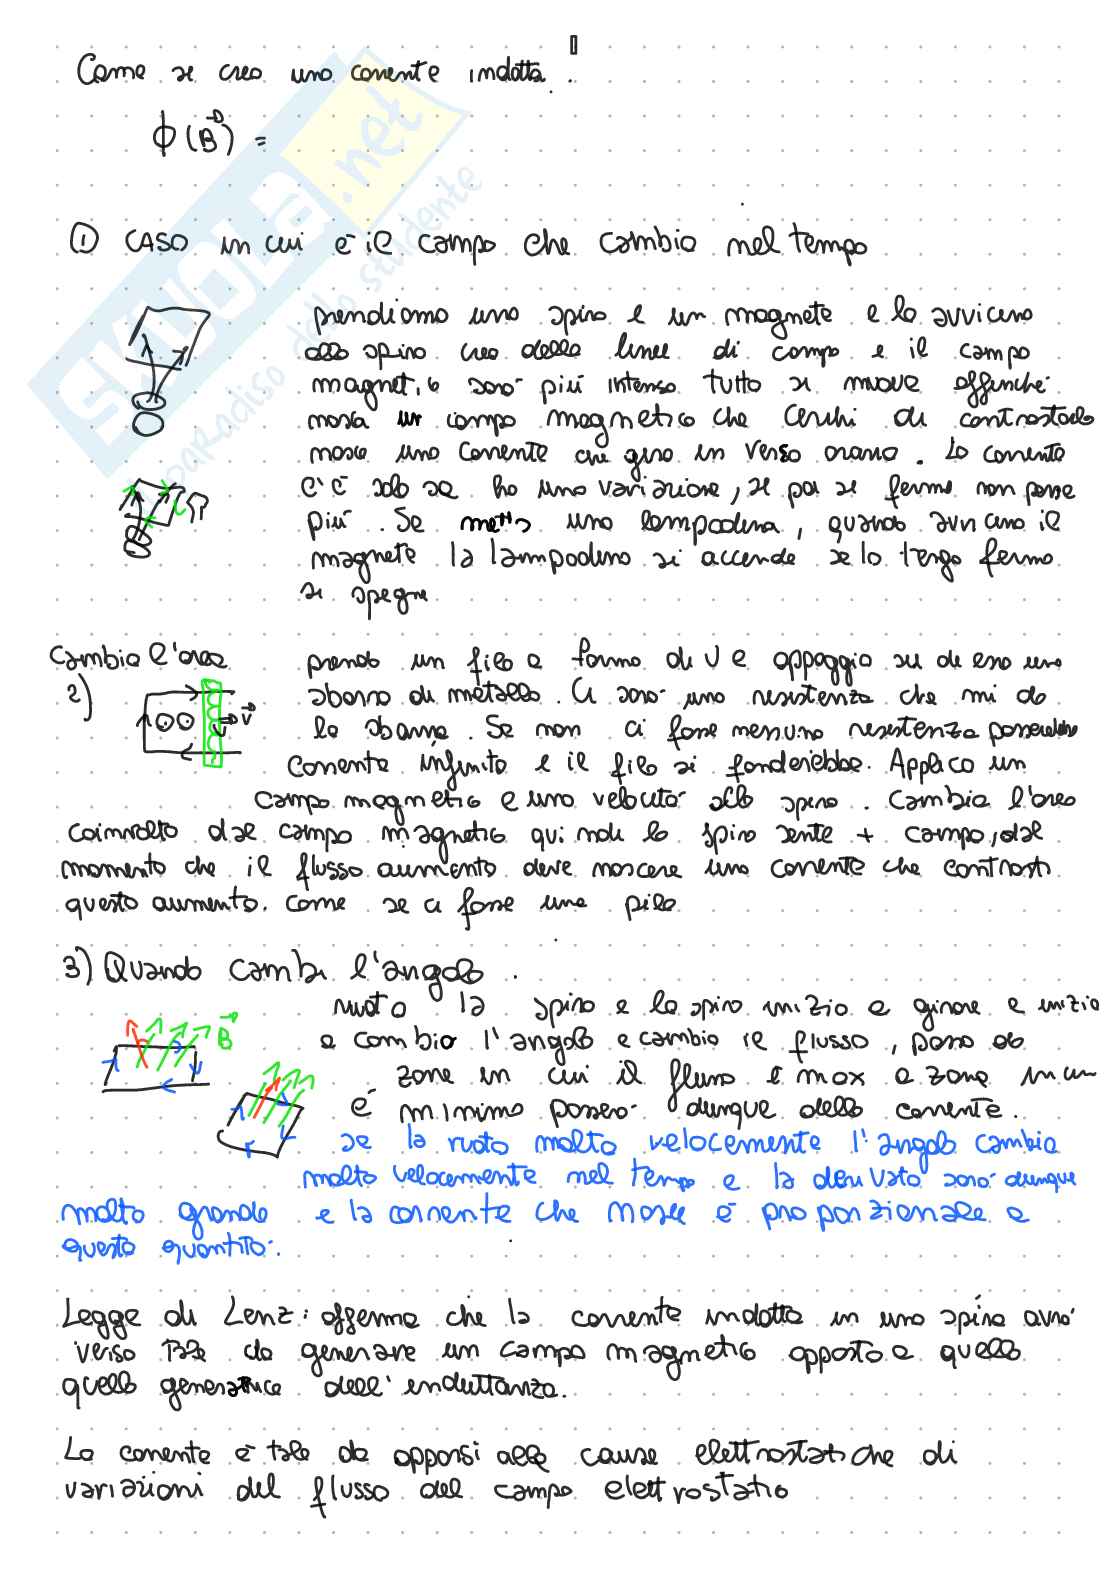 Come si crea una corrente indotta.
Φ(B) =
① CASO in cui è il campo che cambia nel tempo
prendiamo una spira e un magnete e lo avvicino
alla spira crea delle linee di campo e il campo
magnetico sarà più intenso tutto si muove affinché
nasca un campo magnetico che cerchi di contrastarlo
nasce una corrente che gira in verso orario. La corrente
c'è solo se ho una variazione, se poi si ferma non passa
più. Se metto una lampadina, quando avvicino il
magnete la lampadina si accende se lo tengo fermo
si spegne
Cambia l'area
2)
V
prendo un filo a forma di U e appoggio su di esso una
sbarra di metallo. Ci sarà una resistenza che mi dà
la sbarra. Se non ci fosse nessuna resistenza passerebbe
corrente infinita e il filo si fonderebbe. Applico un
campo magnetico e una velocità alla spira. Cambia l'area
coinvolta dal campo magnetico quindi la spira sente + campo, dal
momento che il flusso aumenta deve nascere una corrente che contrasti
questo aumento. Come se ci fosse una pila
3) Quando cambi l'angolo.
B
ruoto la spira e la spira inizia a girare e inizia
a cambiare l'angolo e cambia il flusso, passo da
zone in cui il flusso è max a zone in cui
è minimo passerà dunque della corrente.
se la ruoto molto velocemente l'angolo cambia
molto velocemente nel tempo e la derivata sarà dunque
molto grande e la corrente che nasce è proporzionale a
questa quantità.
Legge di Lenz: afferma che la corrente indotta in una spira avrà
verso tale da generare un campo magnetico opposto a quello
quello generatrice dell'induttanza.
La corrente è tale da opporsi alle cause elettrostatiche di
variazioni del flusso del campo elettrostatico
SKUOLA.net
paradiso dello studente